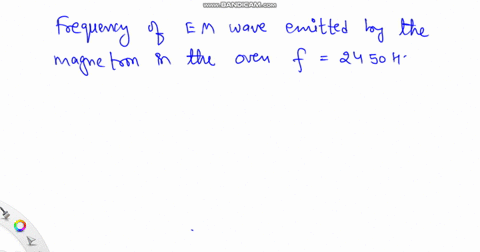 WWW.BANDICAM.COM
Frequency of EM wave emitted by the
magnetron in the oven f = 2450 H